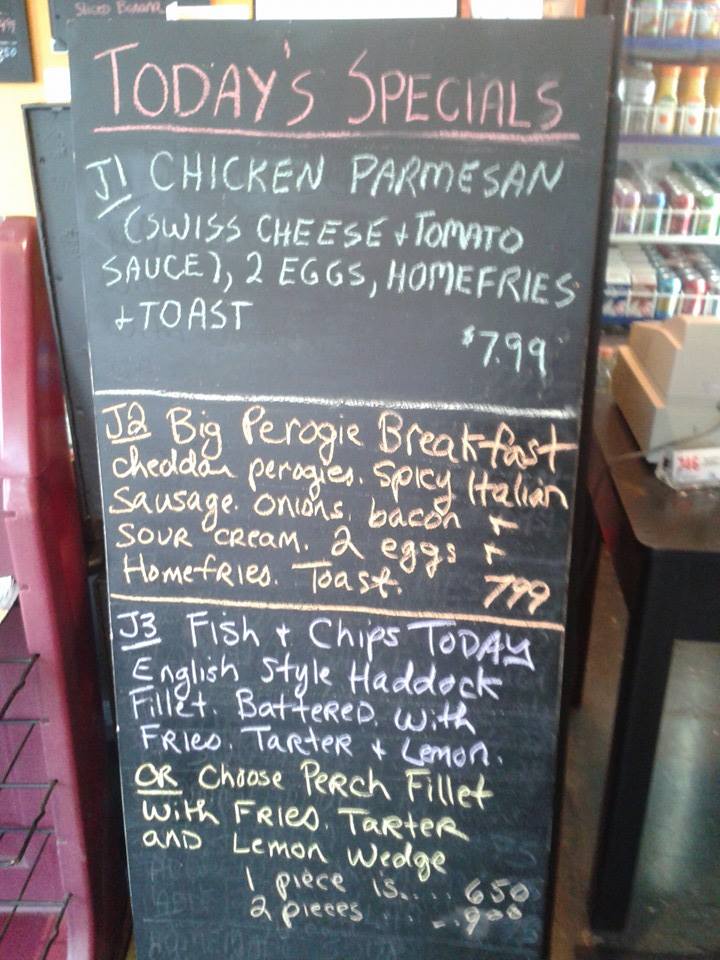 Sliced Banana
TODAY'S SPECIALS
J1 CHICKEN PARMESAN
(SWISS CHEESE + TOMATO
SAUCE), 2 EGGS, HOMEFRIES
+ TOAST
$7.99
J2 Big Perogie Breakfast
cheddar perogies. Spicy Italian
Sausage. onions. bacon +
SOUR CREAM. 2 eggs +
Homefries. Toast. 799
J3 Fish + Chips TODAY
English Style Haddock
Fillet. BATTERED. With
FRIES. TARTER + Lemon.
OR Choose PERCH Fillet
With FRIES. TARTER
AND Lemon Wedge
1 piece is.... 650
2 pieces .... 900